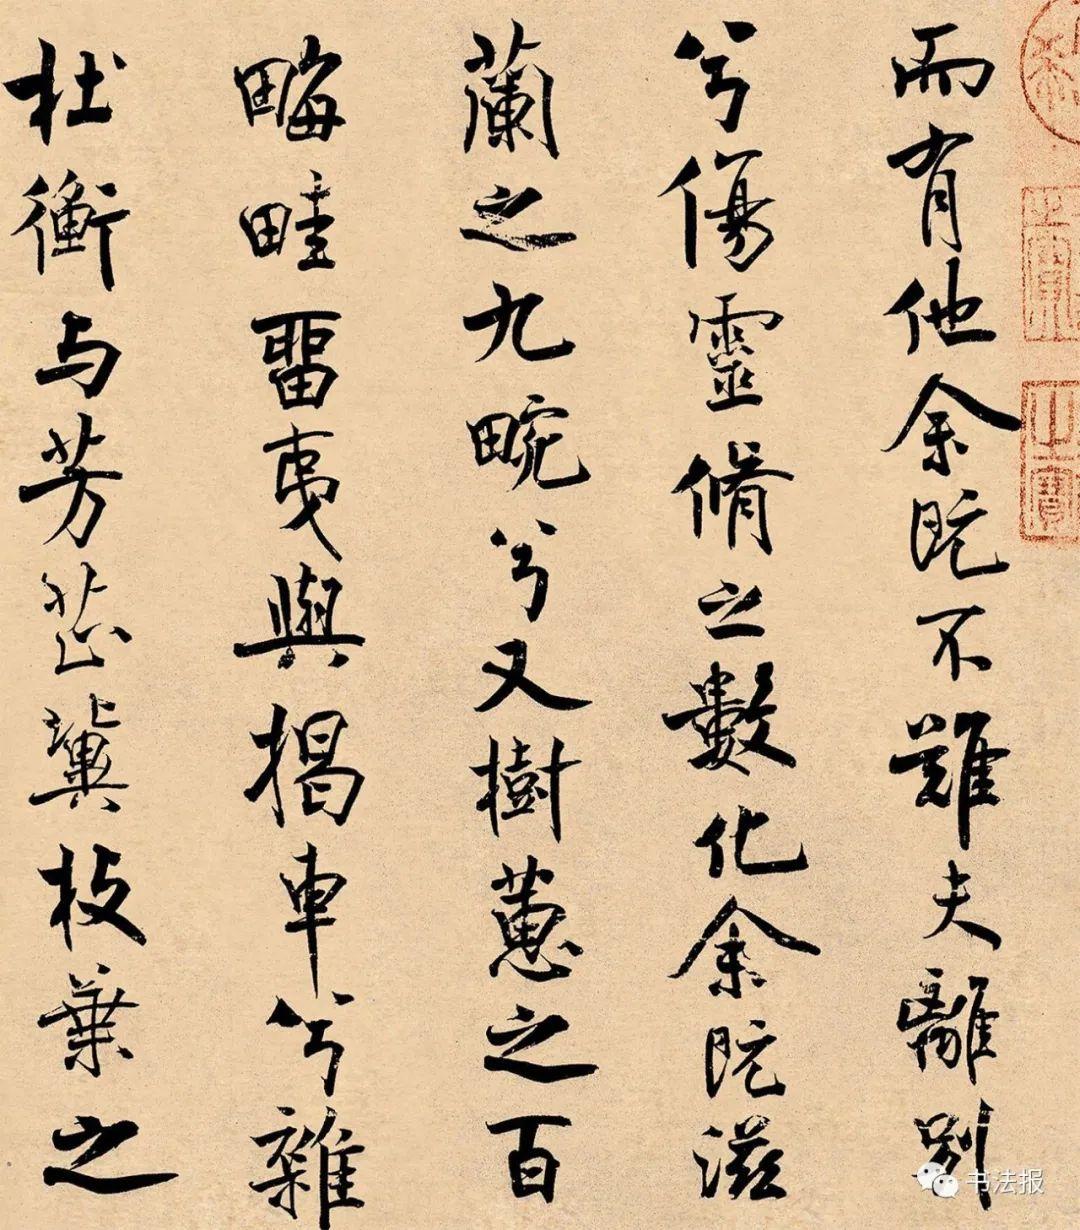 而有他余既不難夫離別
兮傷靈脩之數化余既滋
蘭之九畹兮又樹蕙之百
畮畦留夷與揭車兮雜
杜衡与芳芷冀枝葉之
之寶
书法报